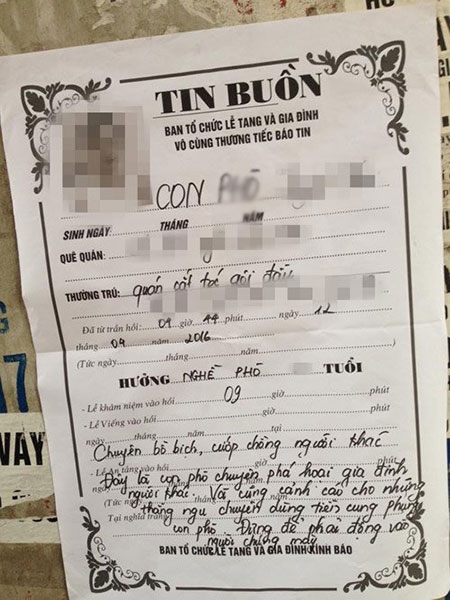 TIN BUỒN
BAN TỔ CHỨC LỄ TANG VÀ GIA ĐÌNH
VÔ CÙNG THƯƠNG TIẾC BÁO TIN
CON PHÒ
SINH NGÀY: THÁNG NĂM
QUÊ QUÁN:
THƯỜNG TRÚ: quán cắt tóc gội đầu
Đã từ trần hồi: 09 giờ 44 phút ngày 12
tháng 04 năm 2016
(Tức ngày tháng năm )
HƯỞNG NGHỀ PHÒ TUỔI
- Lễ khâm niệm vào hồi 09 giờ phút
- Lễ Viếng vào hồi giờ phút
ngày tháng năm tại
Chuyên bồ bịch, cướp chồng người khác
- Lễ An táng vào hồi giờ phút
Đây là con phò chuyên phá hoại gia đình
ngày tháng năm
người khác. Và cũng cảnh cáo cho những
(Tức ngày
thằng ngu chuyên dùng tiền cung phụng
Tại nghĩa trang
con phò. Đừng để phải động vào
người chúng mày
BAN TỔ CHỨC LỄ TANG VÀ GIA ĐÌNH KÍNH BÁO
WAY